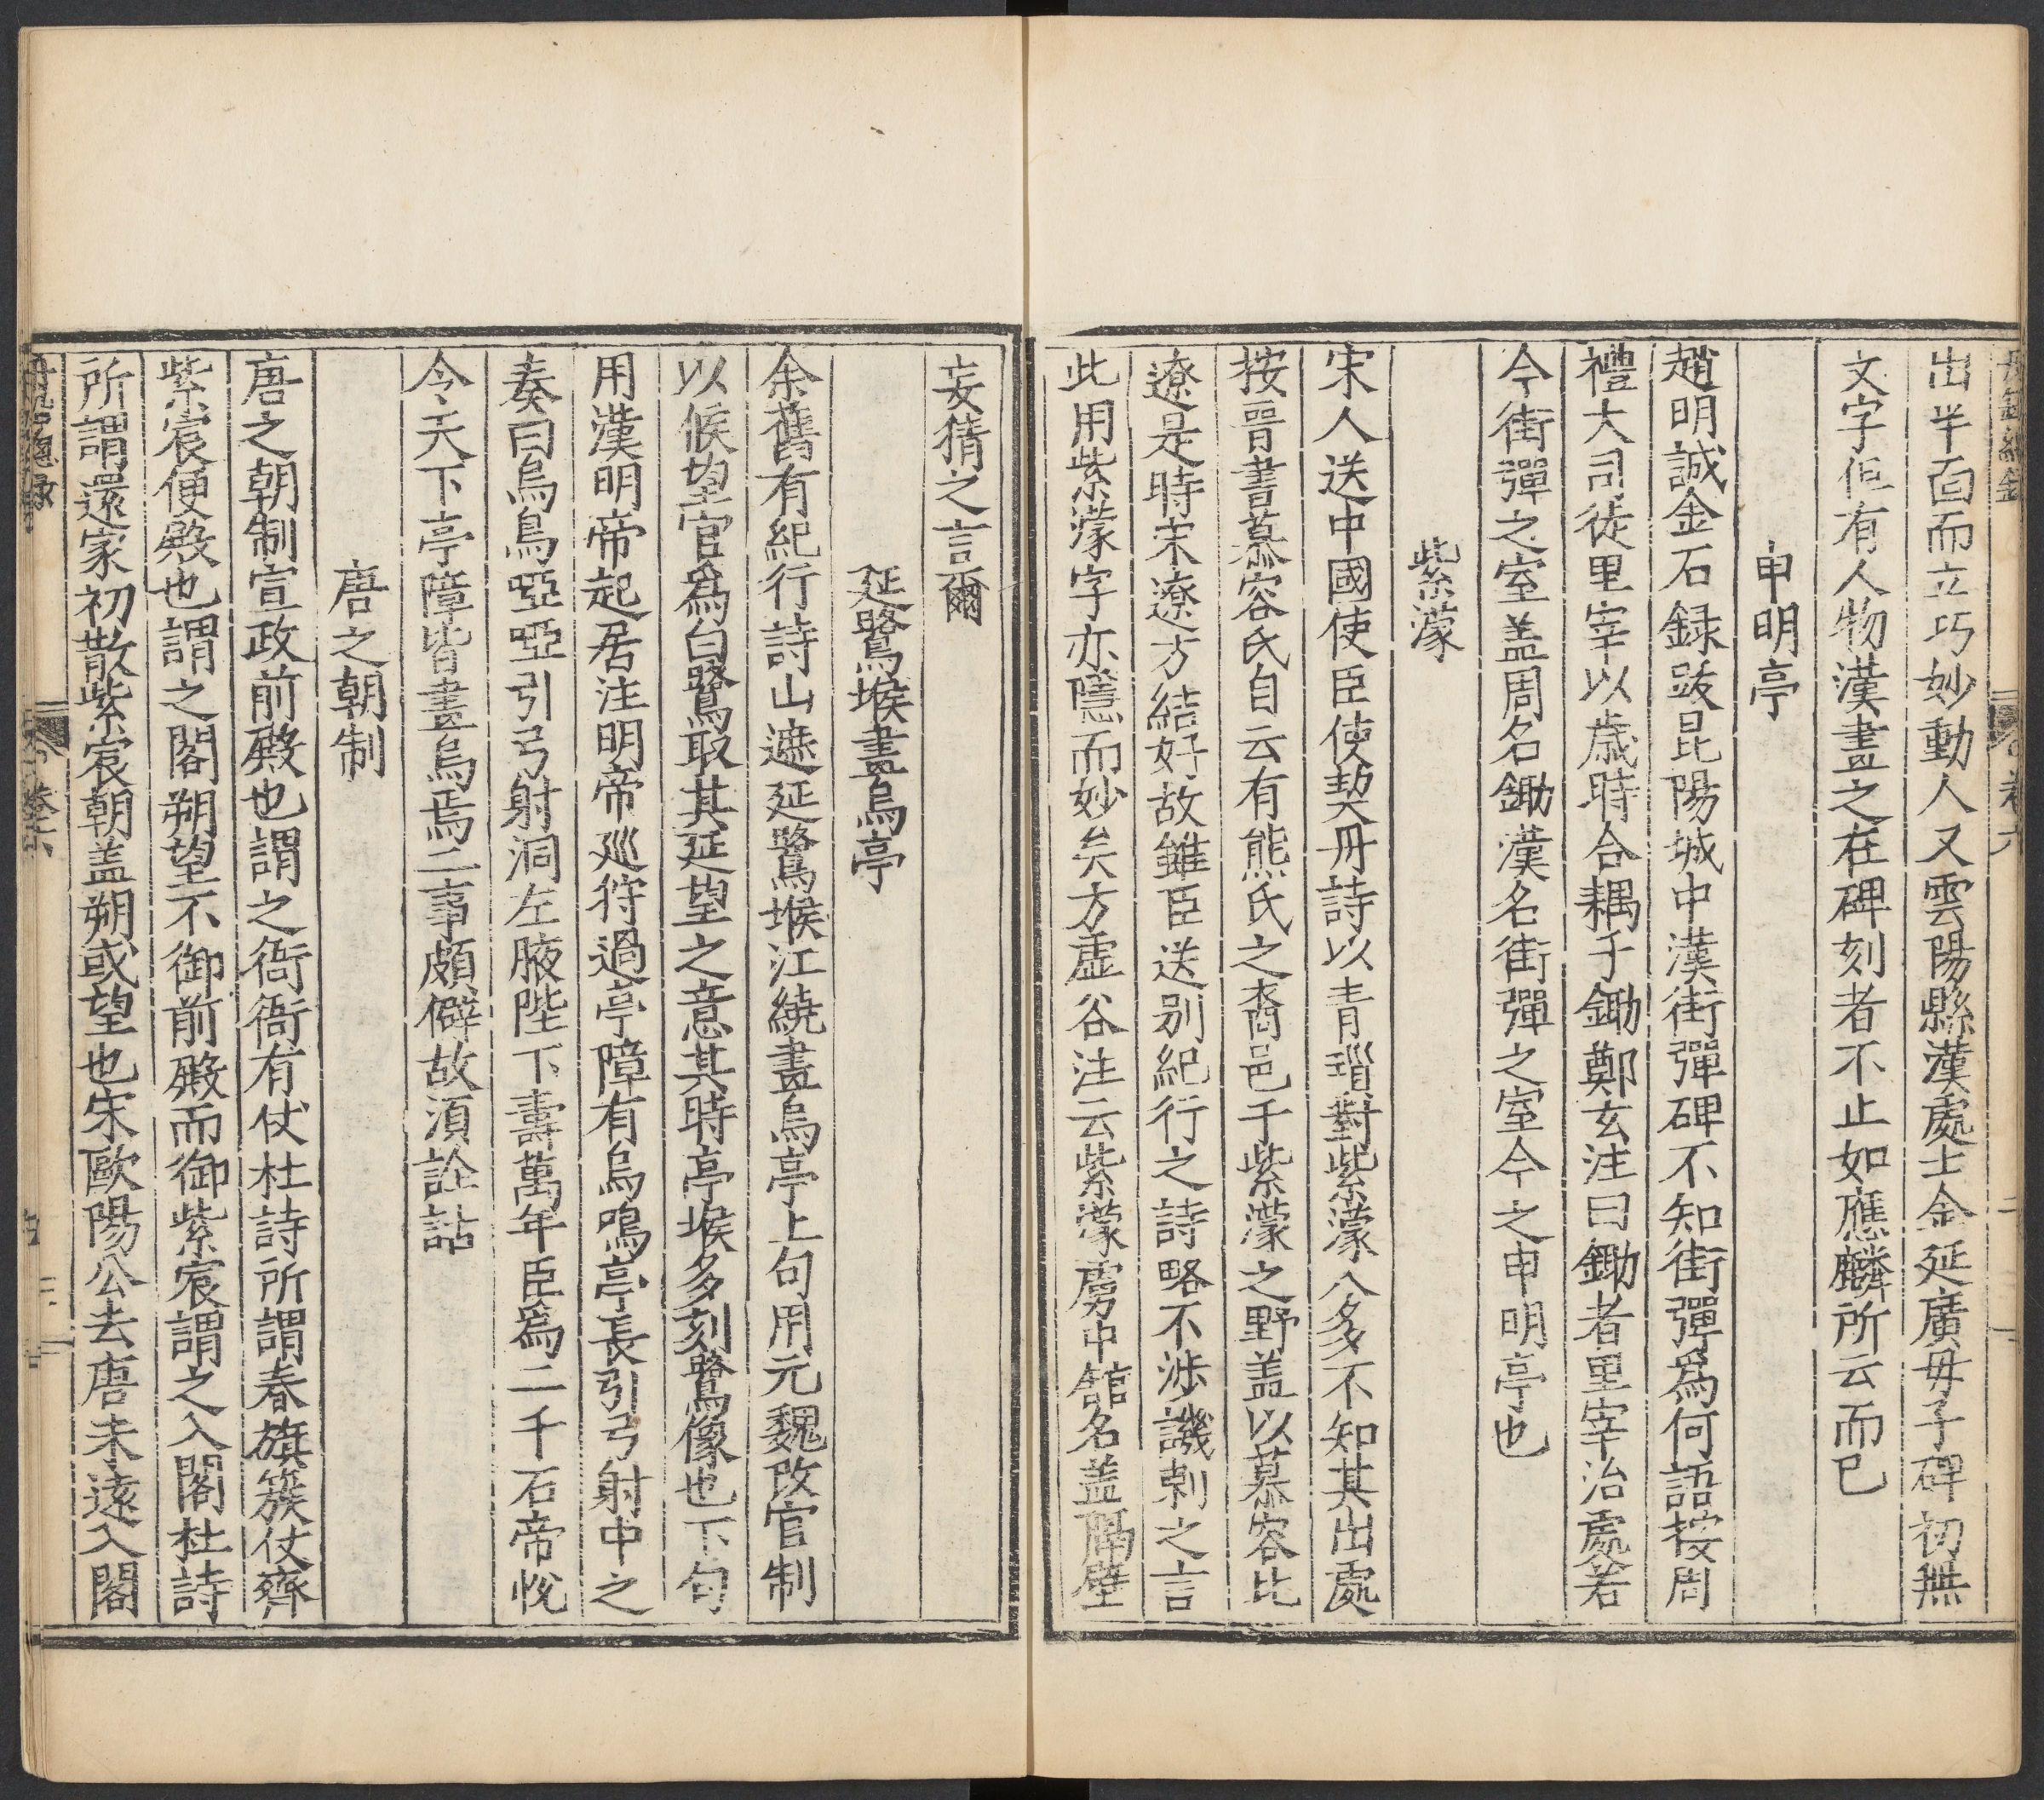 出半面而立巧妙動人又雲陽縣漢處士金延廣毋子碑初無
文字但有人物漢畫之在碑刻者不止如應麟所云而已
申明亭
趙明誠金石録跋昆陽城中漢街彈碑不知街彈爲何語按周
禮大司徒里宰以歲時合耦于鋤鄭玄注曰鋤者里宰治處若
今街彈之室盖周名鋤漢名街彈之室今之申明亭也
紫濛
宋人送中國使臣使契丹詩以青瑣對紫濛人多不知其出處
按晉書慕容氏自云有熊氏之裔邑于紫濛之野盖以慕容比
遼是時宋遼方結好故雖臣送别紀行之詩略不涉譏刺之言
此用紫濛字亦隱而妙矣方虛谷注云紫濛虜中舘名盖隔壁
妄猜之言爾
延鷺堠畫烏亭
余舊有紀行詩山遮延鷺堠江繞畫烏亭上句用元魏改官制
以候望官爲白鷺取其延望之意其時亭堠多刻鷺像也下句
用漢明帝起居注明帝廵狩過亭障有烏鳴亭長引弓射中之
奏曰烏烏啞啞引弓射洞左腋陛下壽萬年臣爲二千石帝悅
今天下亭障皆畫烏焉二事頗僻故須詮詁
唐之朝制
唐之朝制宣政前殿也謂之衙衙有仗杜詩所謂春旗簇仗齊
紫宸便殿也謂之閤朔望不御前殿而御紫宸謂之入閤杜詩
所謂還家初散紫宸朝盖朔或望也宋歐陽公去唐未遠入閤
卷六